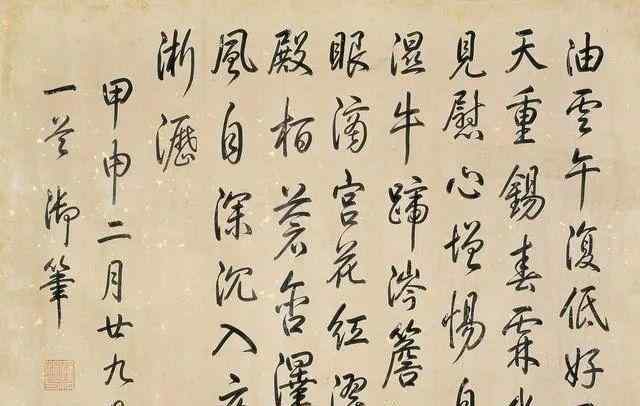 油雲午復低好
天重錫春霖
見慰心增惕自
濕牛蹄涔簷
眼滴宮花紅濯
殿柏蒼含澤
風自深沉入夜
淅瀝
甲申二月廿九日
一首御筆